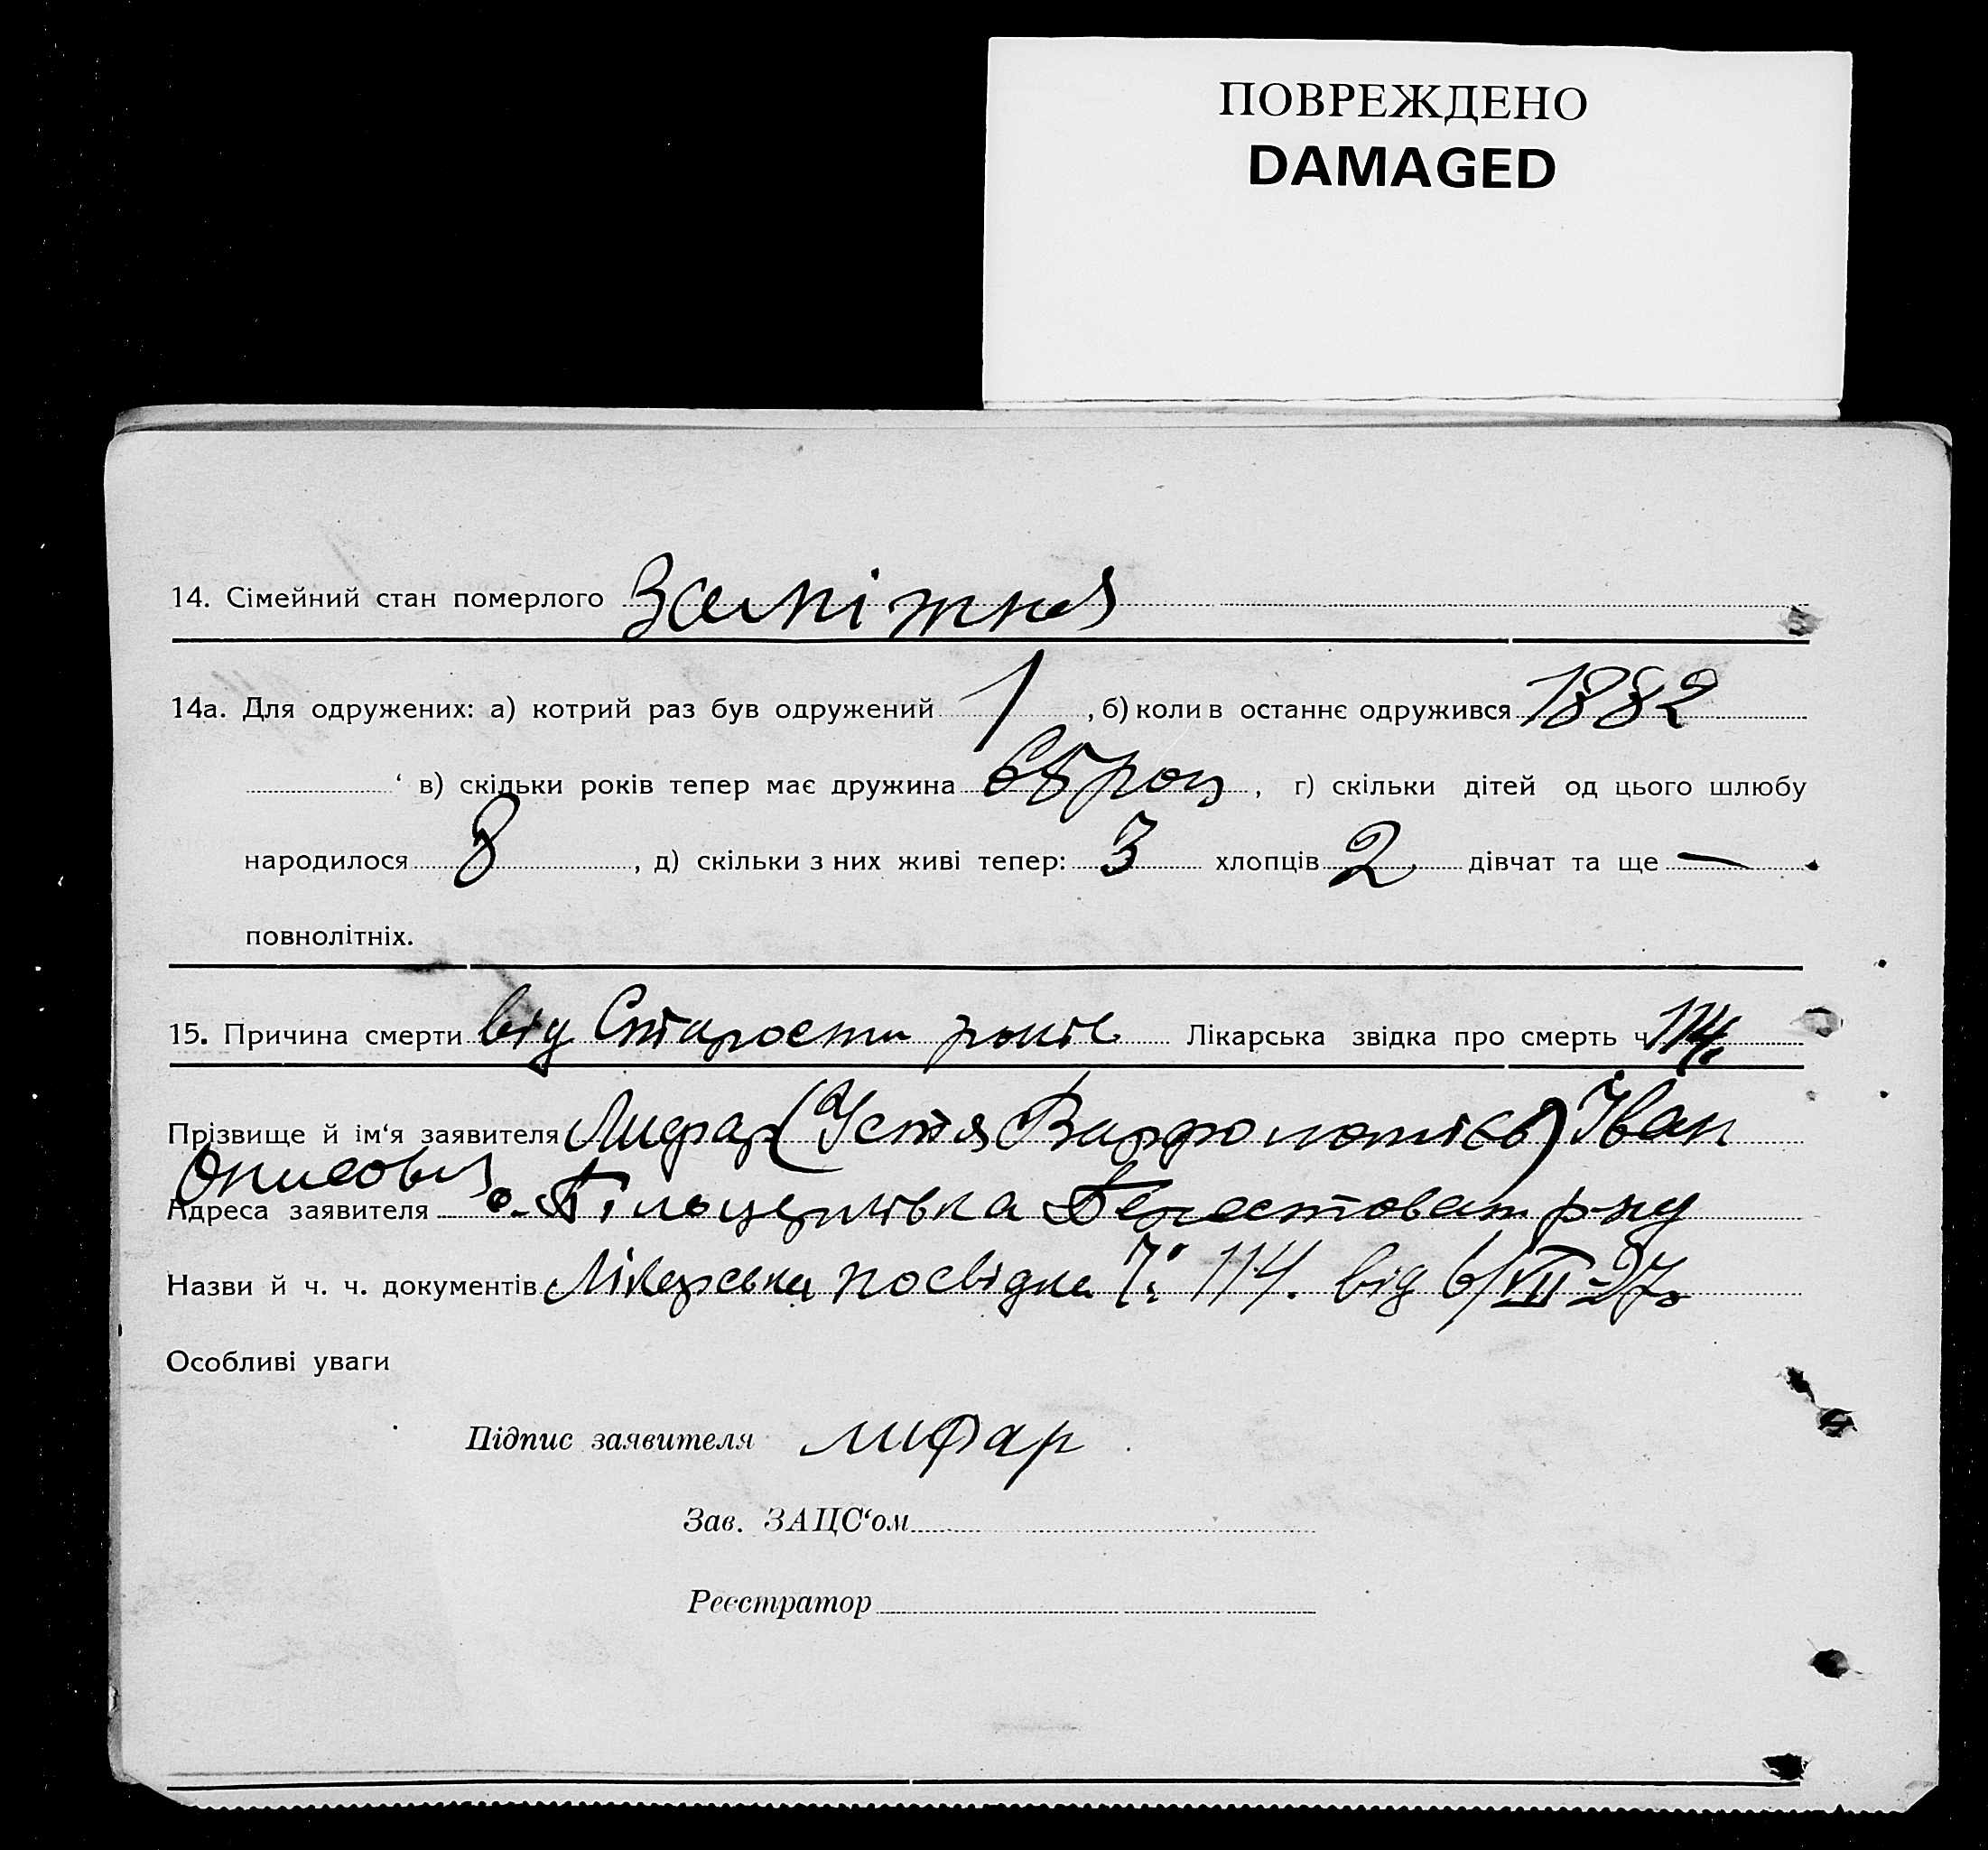 ПОВРЕЖДЕНО
DAMAGED
14. Сімейний стан померлого Заміжня
14а. Для одружених: а) котрий раз був одружений 1, б) коли в останнє одружився 1882
‘ в) скільки років тепер має дружина 65 рок, г) скільки дітей од цього шлюбу
народилося 8, д) скільки з них живі тепер: 3 хлопців 2 дівчат та ще —
повнолітніх.
15. Причина смерти від Старости років Лікарська звідка про смерть ч 114.
Прізвище й ім‘я заявителя Лифар (Устія Варфоломієв) Іван
Адреса заявителя с. Берестовеньк. р-ну
Назви й ч. ч. документів Лікарська посвідка Ч: 114. від 6/VII-27.
Особливі уваги
Підпис заявителя лифар
Зав. ЗАЦС‘ом
Реєстратор